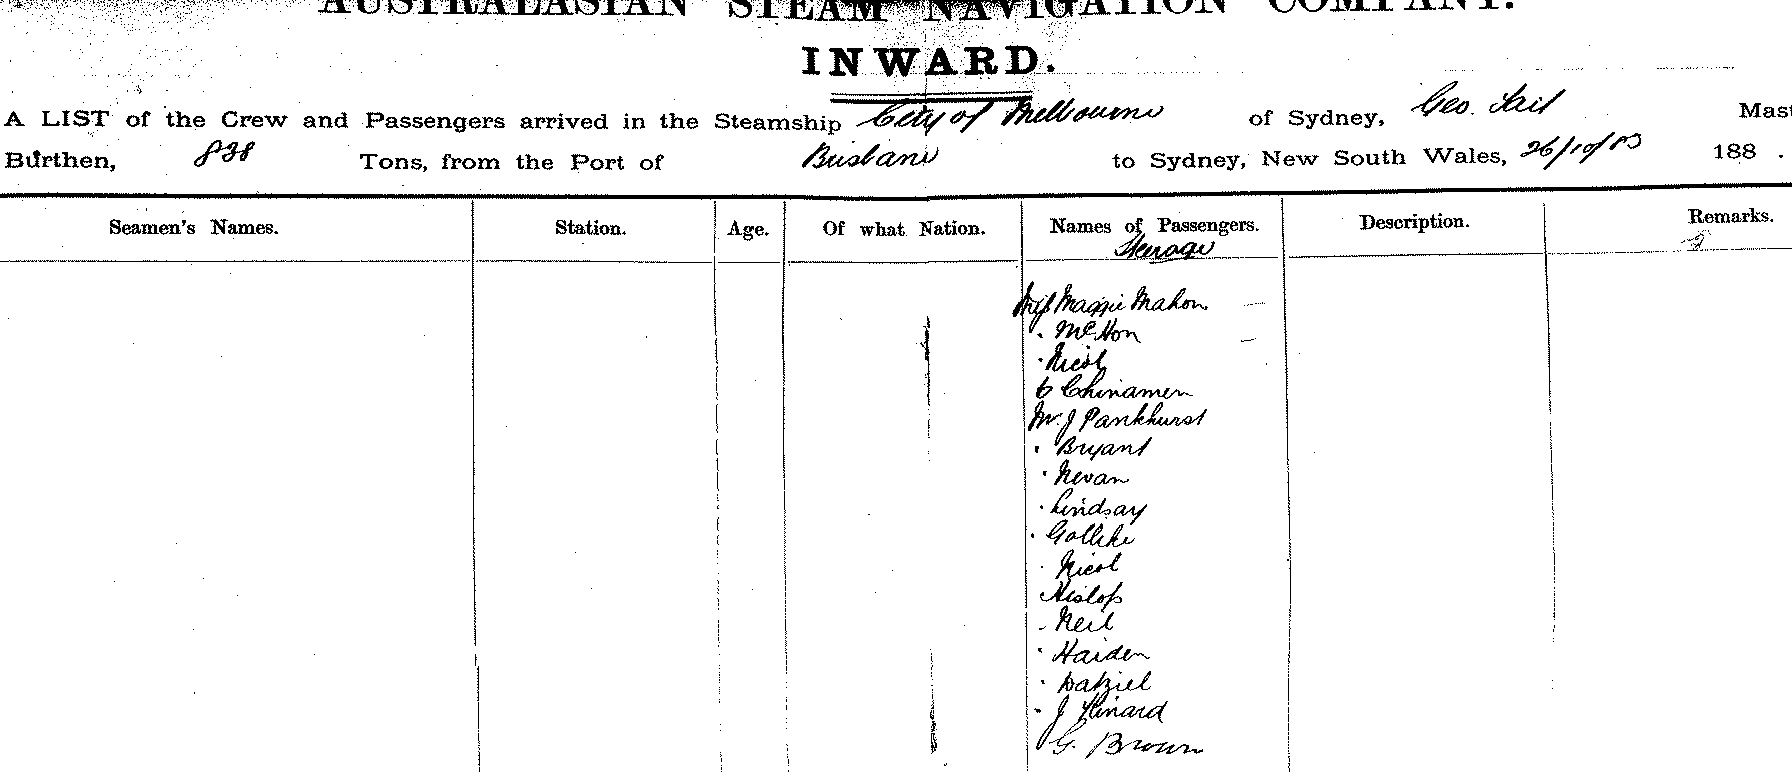 AUSTRALASIAN STEAM NAVIGATION COMPANY.
INWARD.
A LIST of the Crew and Passengers arrived in the Steamship City of Melbourne of Sydney, Geo. Tait Mast
Burthen, 838 Tons, from the Port of Brisbane to Sydney, New South Wales, 26/10/83 188 .
Seamen's Names. Station. Age. Of what Nation. Names of Passengers. Description. Remarks.
Steerage
Miss Maggie Mahon
" McHon
" Nicol
6 Chinamen
Mr. J Pankhurst
" Bryant
" Nevan
" Lindsay
" Gollike
" Nicol
Hislop
" Neil
" Haiden
" Dalziel
" J Kinard
G. Brown